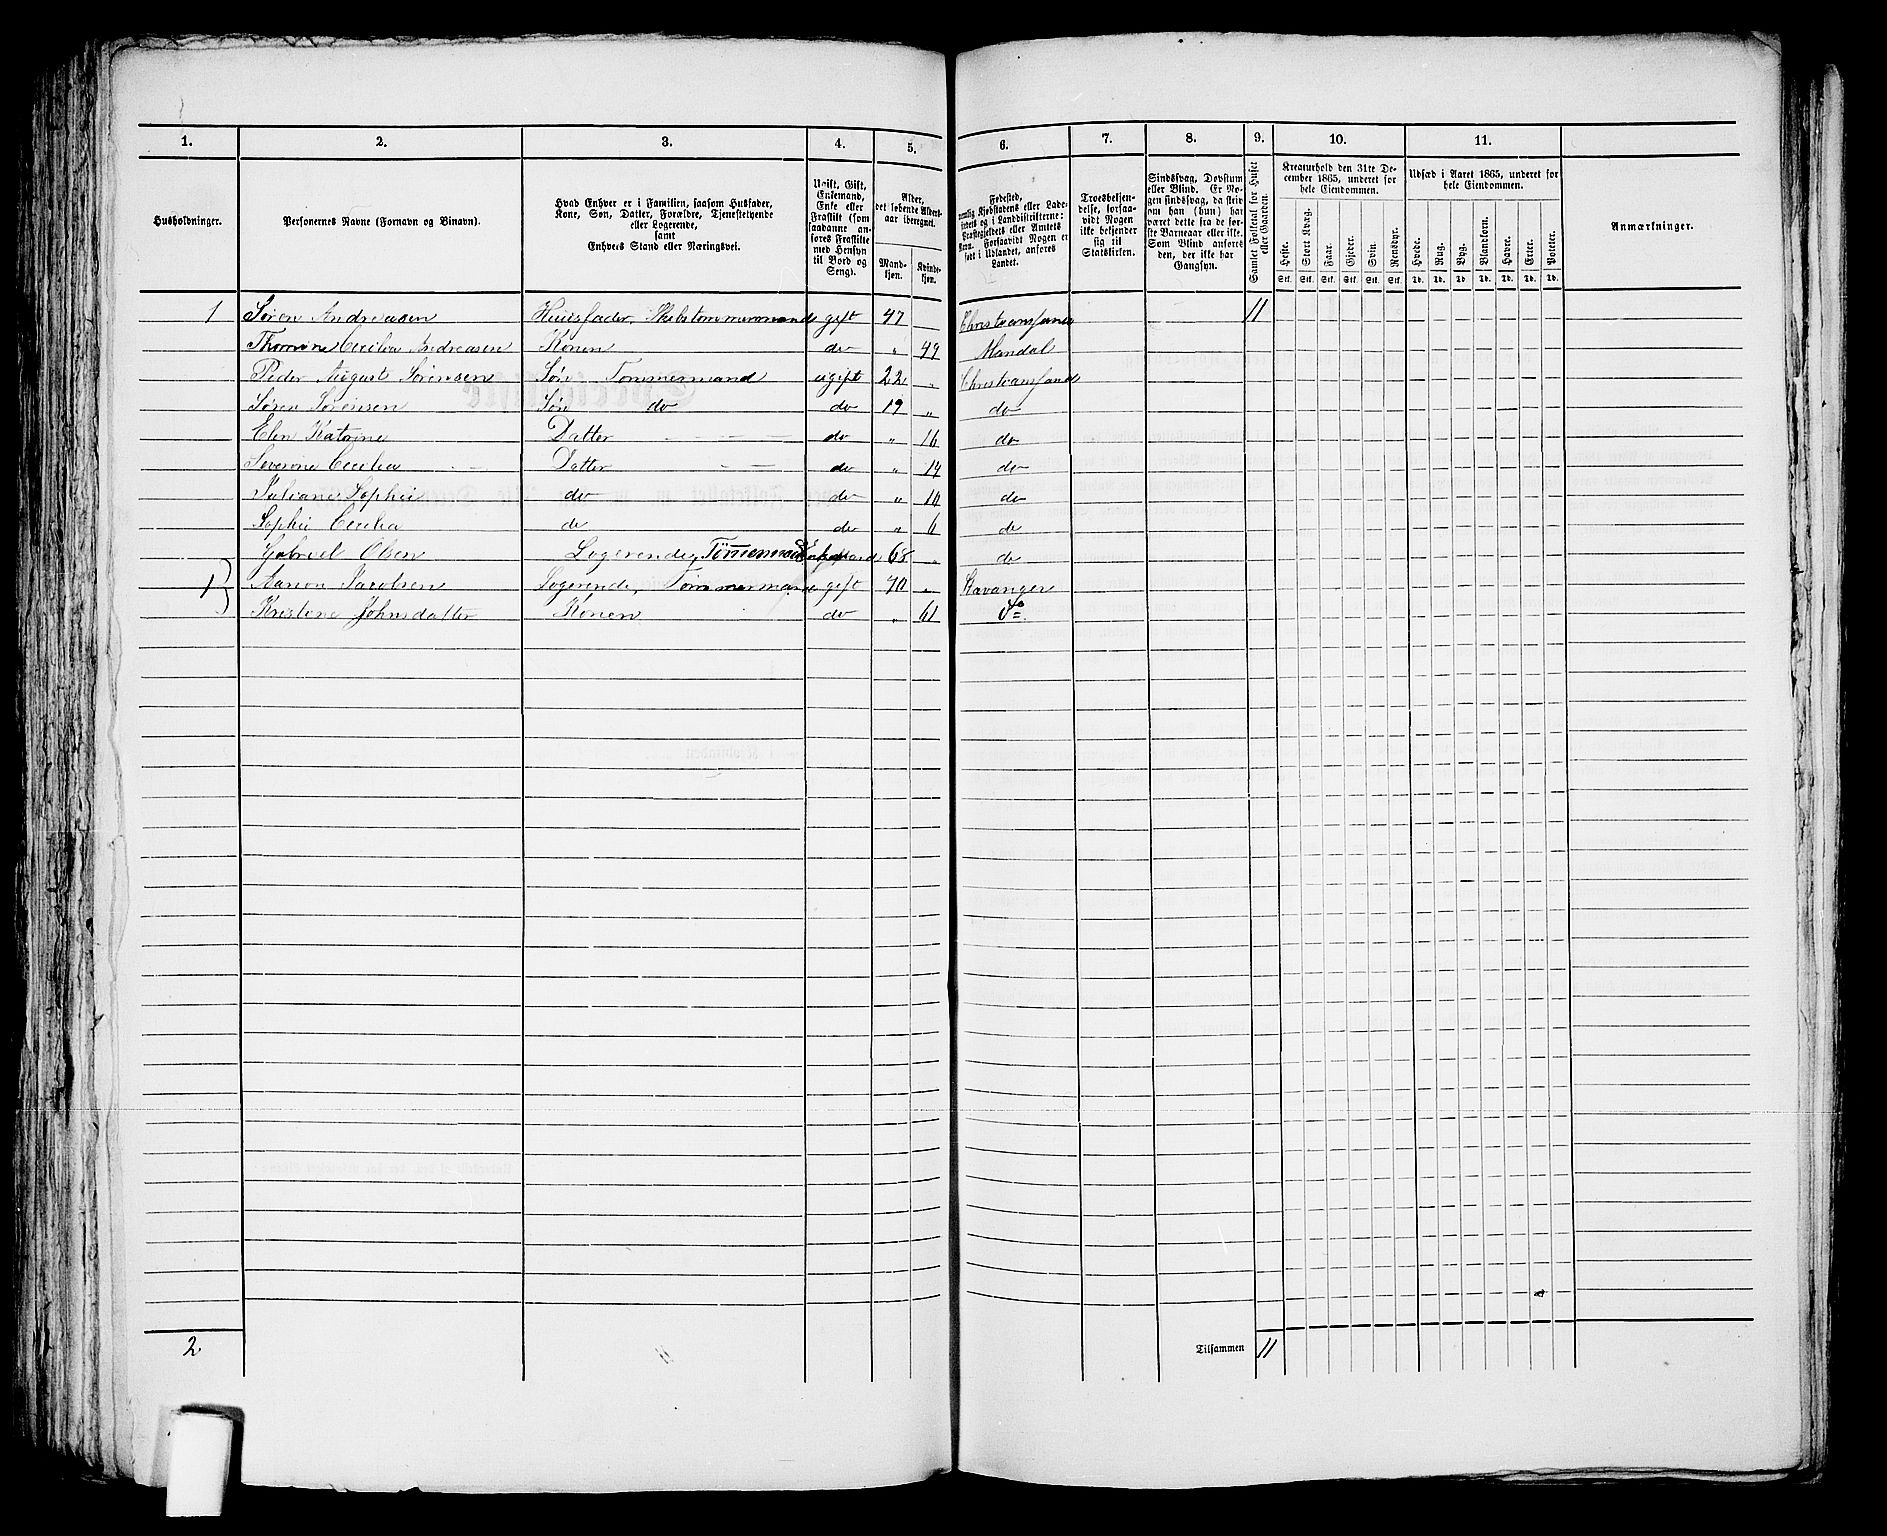 1. 2. 3. 4. 5. 6. 7. 8. 9. 10. 11.
Husholdninger.
Personernes Navne (Fornavn og Binavn).
Hvad Enhver er i Familien, saasom Husfader,
Kone, Søn, Datter, Forældre, Tjenestetyende
eller Logerende,
samt
Enhvers Stand eller Næringsvei.
Ugift, Gift,
Enkemand,
Enke eller
Fraskilt (som
saadanne an-
føres Fraskilte
med Hensyn
til Bord og
Seng).
Alder,
det løbende Alders-
aar iberegnet.
Mand-
kjøn.
Kvinde-
kjøn.
Fødested,
Landet.
Troesbekjen-
delse, forsaa-
vidt Nogen
ikke bekjender
sig til
Statskirken.
Sindssvag, Døvstum
eller Blind. Er No-
gen sindssvag, da skriv
om han (hun) har
været dette fra de før-
ste Barneaar eller ikke.
Som Blind anføres
den, der ikke har
Gangsyn.
Samlet Folketal for Huset
eller Gaarden.
Kreaturhold den 31te De-
cember 1865, underet for
hele Eiendommen.
Heste. Stort Kvæg. Faar. Gjeder. Svin. Rensdyr.
Stk. Stk. Stk. Stk. Stk. Stk.
Udsæd i Aaret 1865, underet for
hele Eiendommen.
Hvede. Rug. Byg. Blandkorn. Havre. Erter. Poteter.
Td. Td. Td. Td. Td. Td. Td.
Anmærkninger.
1 Søren Andreasen Huusfader, Skibstømmermand gift 47 Christiansand 11
Thomine Cecilia Andreasen Konen do " 49 Mandal
Peder August Sørensen Søn Tømmermand ugift 22 " Christiansand
Søren Sørensen Søn do do 19 " do
Elen Katrine Datter do " 16 do
Severine Cecilia Datter do " 14 do
Juliane Sophie do do " 10 do
Sophie Cecilia do do " 6 do
Gabriel Olsen Logerende, Tömmermand Enkemand 68 " do
1 Aanon Jacobsen Logerende, Tømmermand gift 70 " Stavanger
Kristine Johnsdatter Konen do " 61 do
2 Tilsammen 11